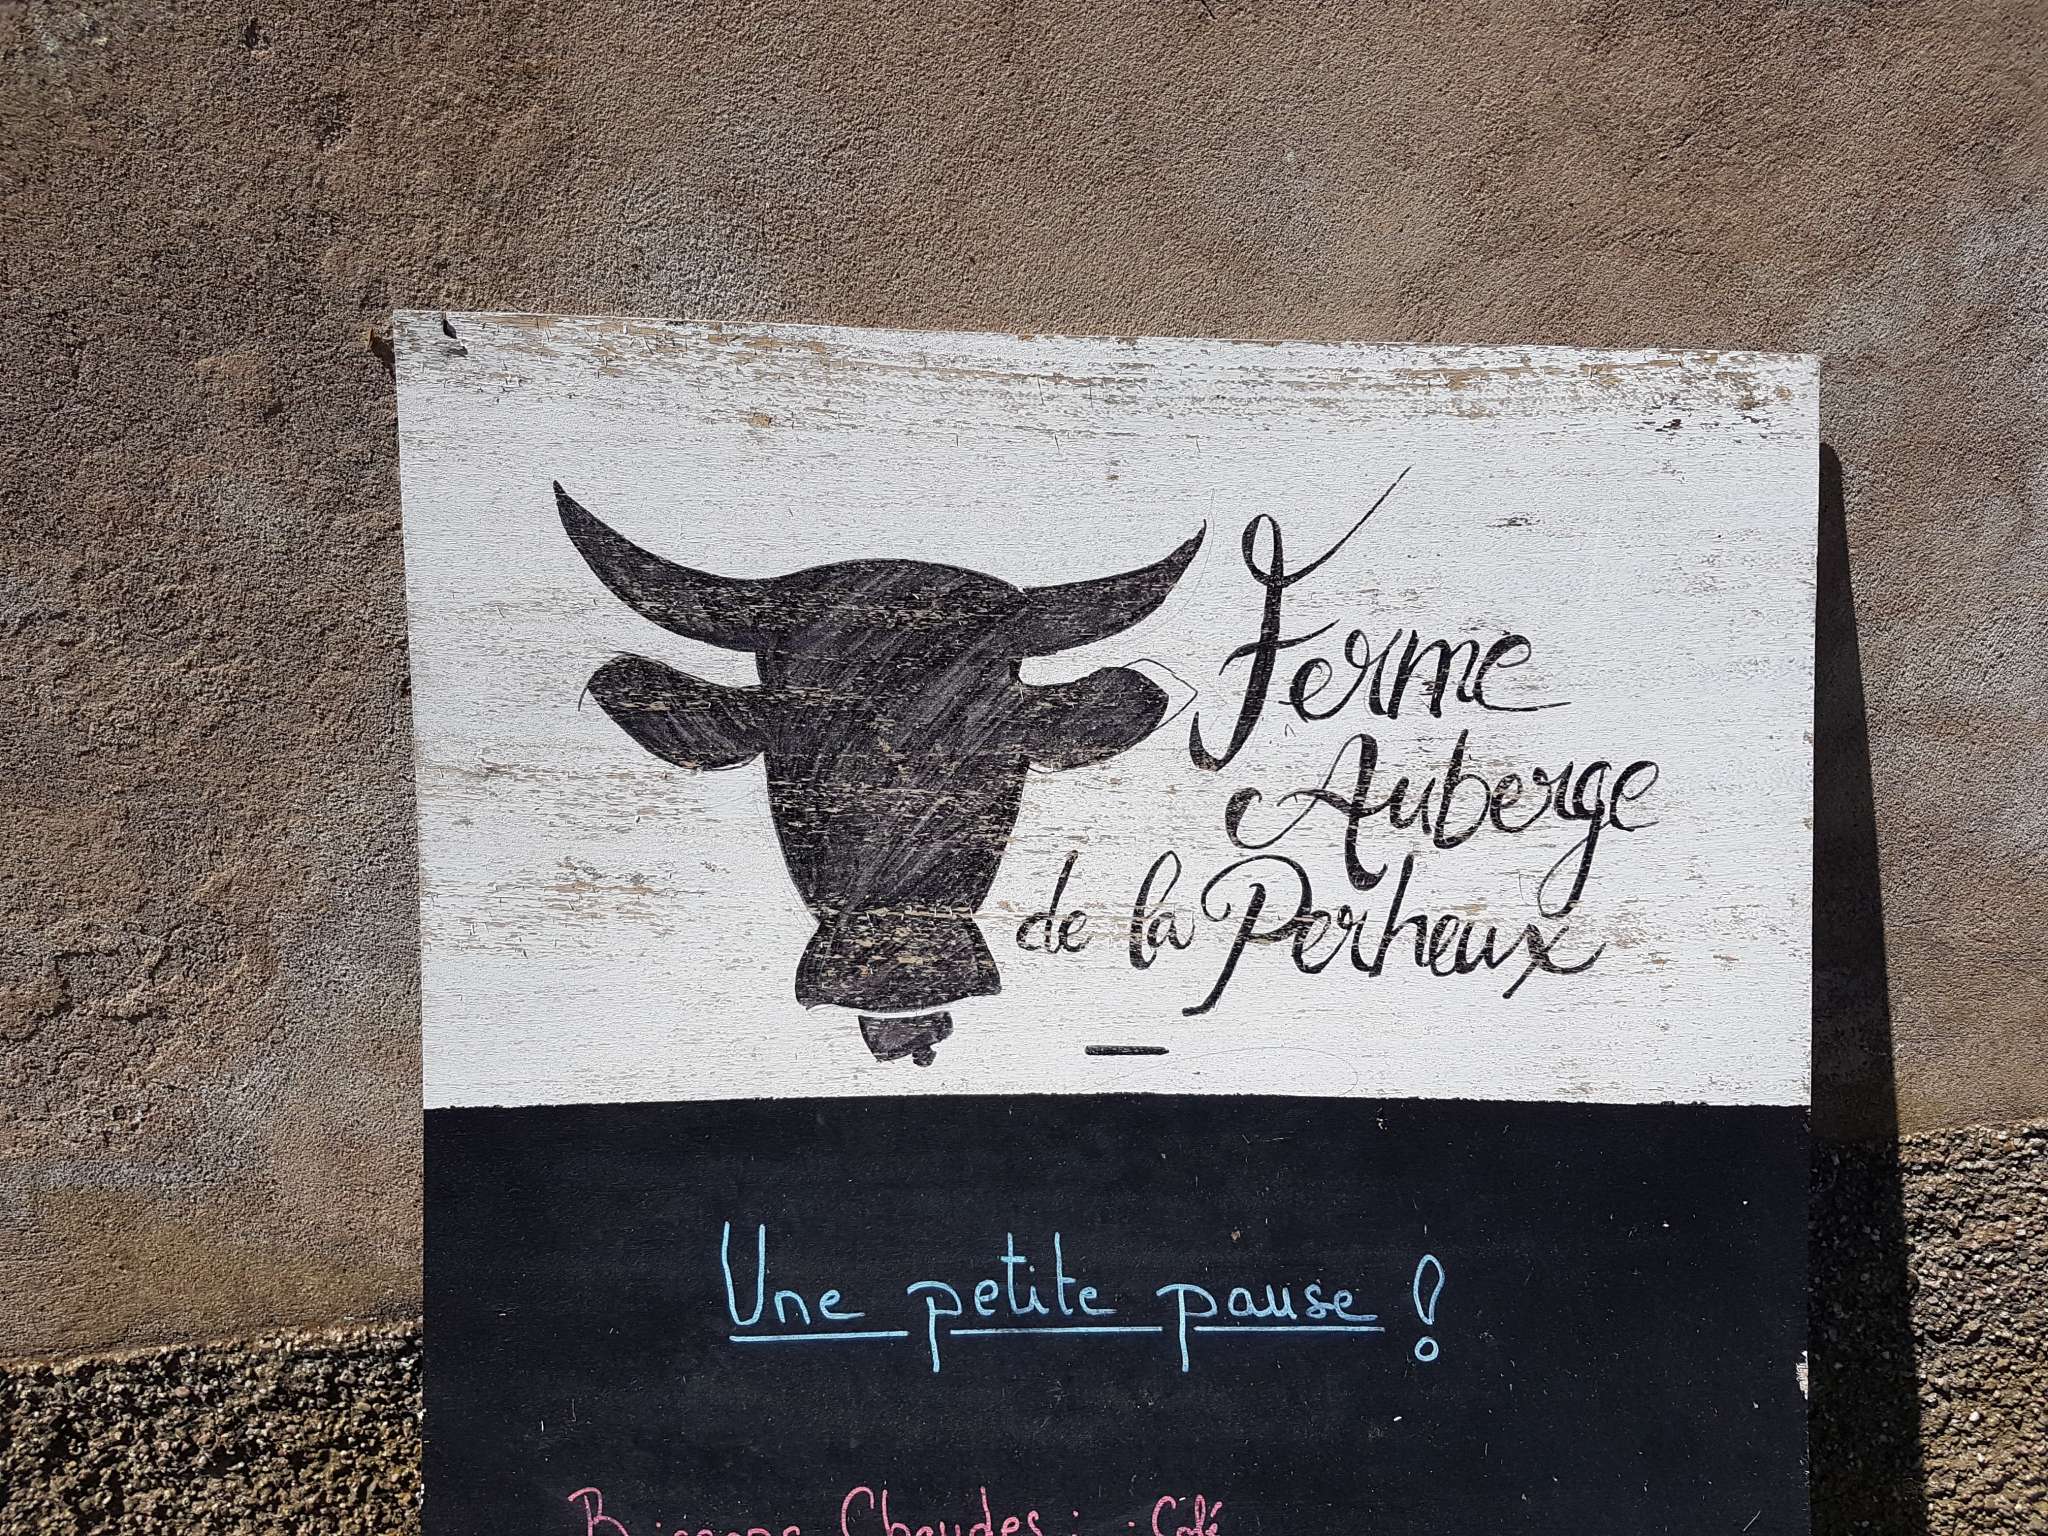 Ferme
Auberge
de la Perheux
Une petite pause !
Boissons Chaudes : . Café